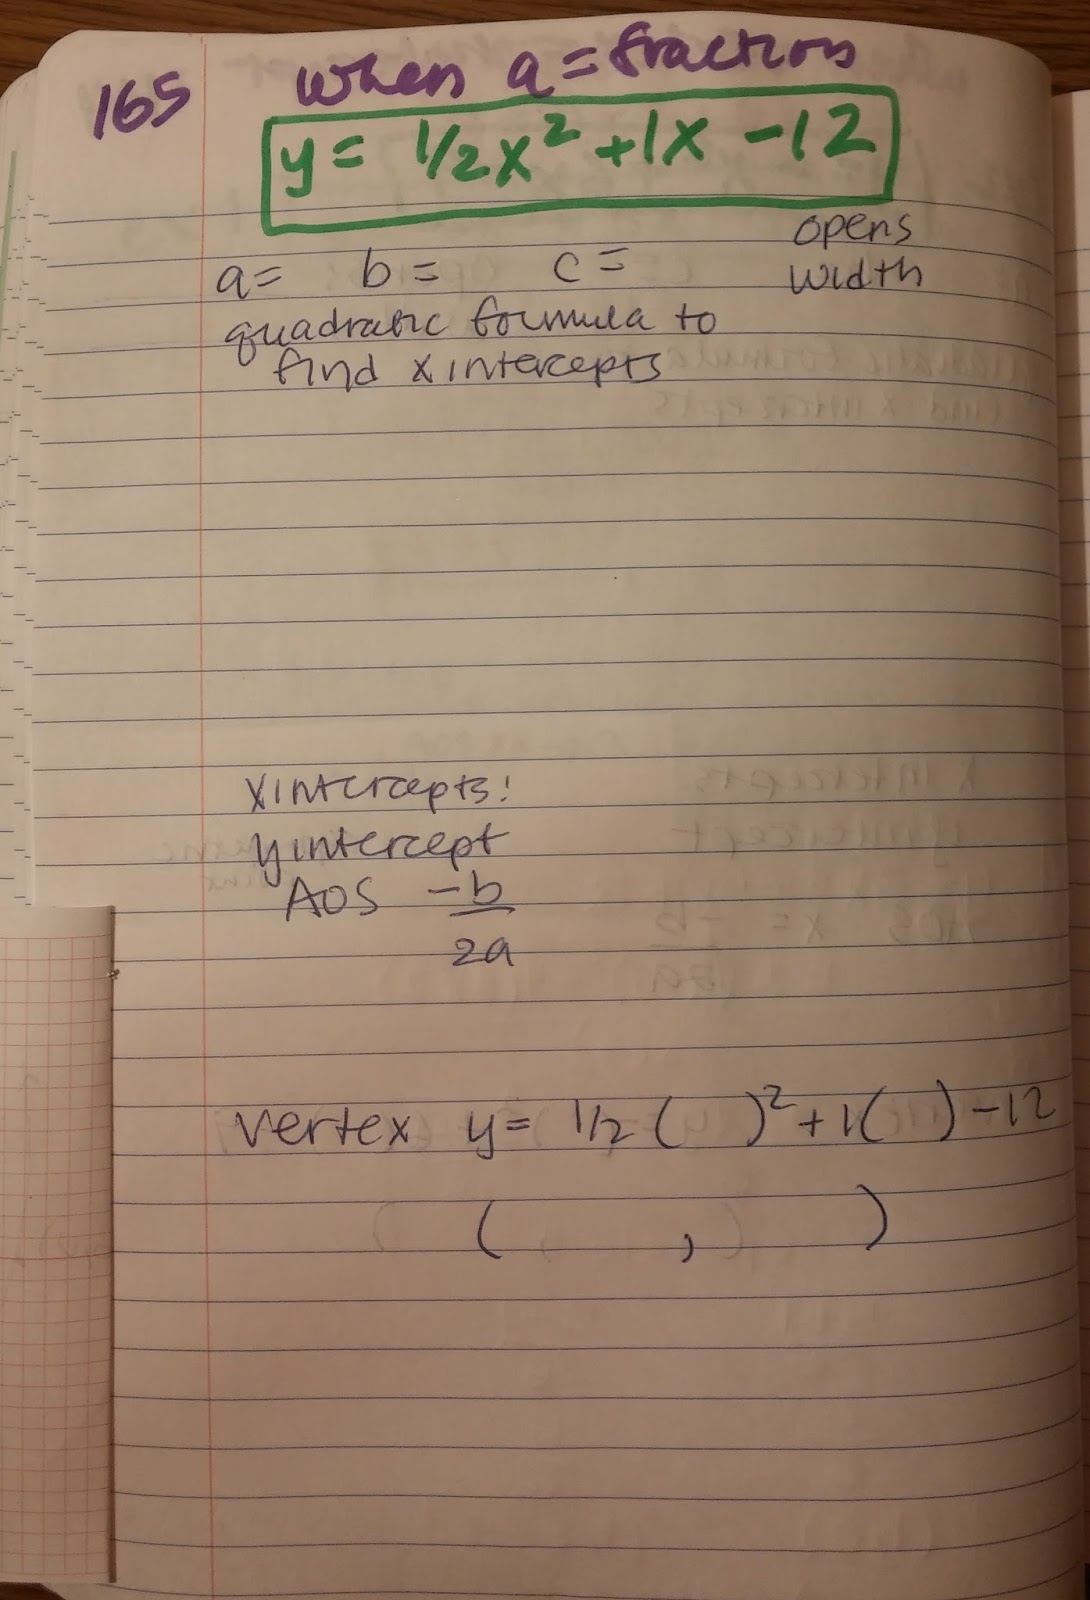 165 when a = fraction
y = 1/2x² + 1x - 12
opens
a= b= c= width
quadratic formula to
find x intercepts
x intercepts:
y intercept
AOS -b
2a
vertex y= 1/2 ( )² + 1( ) - 12
( , )